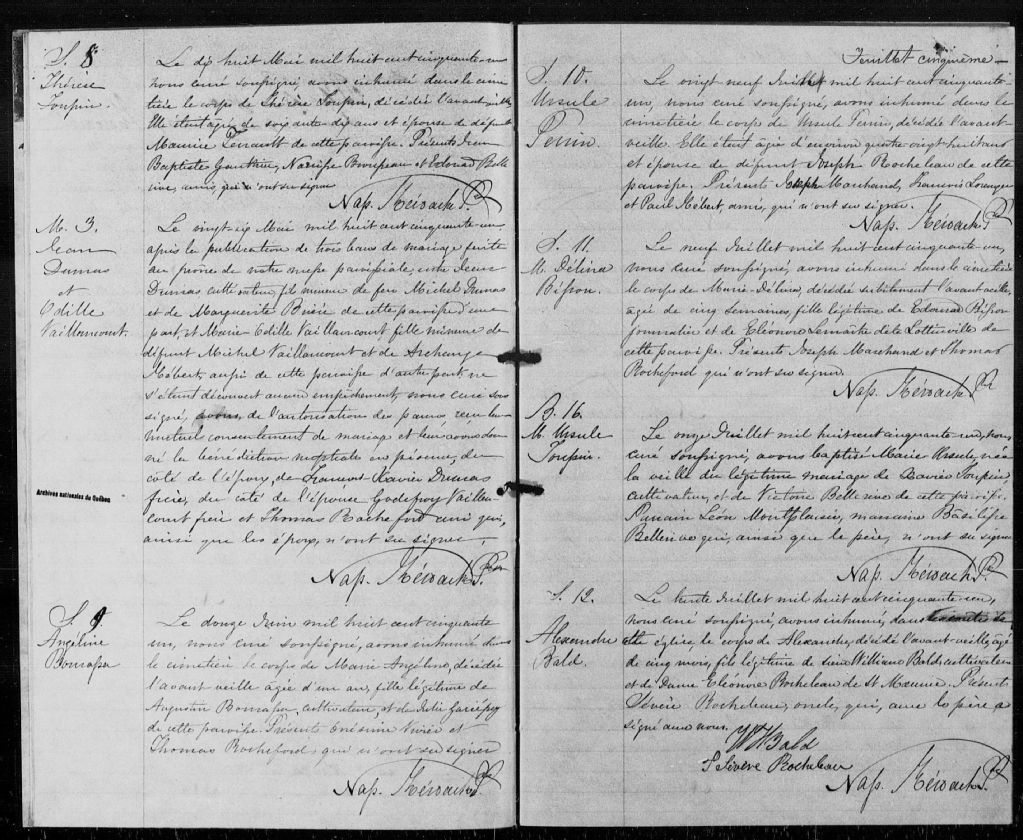 S. 8.
Thérèse
Toupin.
Le dix huit Mai mil huit cent cinquante-un
nous curé soussigné, avons inhumé dans le cime
tière le corps de Thérèse Toupin, décédée l'avant-veille
Elle était âgée de soixante dix ans et épouse de défunt
Maurice de cette paroisse. Présents Jean
Baptiste Gauthier, Narcisse et Edouard Belle
rive, amis, qui n'ont su signer
Nap. Kéroack Ptre
M. 3.
Jean
Dumas
et
Odille
Vaillancourt.
Le vingt-six Mai mil huit cent cinquante-un,
après la publication de trois bans de mariage faite
au prône de notre messe paroissiale, entre Jean
Dumas cultivateur, fils mineur de feu Michel Dumas
et de Marguerite de cette paroisse d'une
part, et Marie Odille Vaillancourt fille mineure de
défunt Michel Vaillancourt et de Archange
Hébert, aussi de cette paroisse d'autre part, ne
s'étant découvert aucun empêchement, nous curé sous
signé, avons, de l'autorisation des parens, reçu leur
mutuel consentement de mariage et leur avons don
né la bénédiction nuptiale en présence, du
côté de l'époux, de François-Xavier Dumas
frère, du côté de l'épouse Godefroy Vaillan
court frère et Thomas Rocheford ami qui,
ainsi que les époux, n'ont su signer.
Nap. Kéroack Ptre
Archives nationales du Québec
S. 9
Angéline
Bomassa
Le douze Juin mil huit cent cinquante
un, nous curé soussigné, avons inhumé dans
le cimetière le corps de Marie Angéline, décédée
l'avant veille âgée d'un an, fille légitime de
Augustin Bomassa, cultivateur, et de Julie Gariépy
de cette paroisse. Présents Onésime et
Thomas Rocheford qui n'ont su signer
Nap. Kéroack Ptre
Feuillet cinquième
S. 10.
Ursule
Perrin.
Le vingt neuf mil huit cent cinquante
un, nous curé soussigné, avons inhumé dans le
cimetière le corps de Ursule Perrin, décédée l'avant-
veille. Elle était âgée d'environ quatre vingt-huit ans
et épouse de défunt Joseph Rocheleau de cette
paroisse. Présents Joseph Marchand, François
et Paul Hébert, amis, qui n'ont su signer.
Nap. Kéroack Ptre
S. 11.
M. Délina
Bisson.
Le neuf Juillet mil huit cent cinquante un,
nous curé soussigné, avons inhumé dans le cimetière
le corps de Marie-Délina, décédée subitement l'avant veille,
âgée de cinq semaines, fille légitime de Edouard Bisson
journalier et de Eléonore Lemaître dite Lottinville de
cette paroisse. Présents Joseph Marchand et Thomas
Rocheford qui n'ont su signer.
Nap. Kéroack Ptre
B. 16.
M. Ursule
Toupin.
Le onze Juillet mil huit cent cinquante un, nous
curé soussigné, avons baptisé Marie Ursule, née
la veille du légitime mariage de Xavier Toupin,
cultivateur, et de Victoire Bellerive de cette paroisse.
Parrain Léon Montplaisir, marraine Basilisse
Bellerive qui, ainsi que le père, n'ont su signer
Nap. Kéroack Ptre
S. 12.
Alexandre
Bald.
Le trente Juillet mil huit cent cinquante-un,
nous curé soussigné, avons inhumé, dans
cette église, le corps de Alexandre, décédé l'avant veille, âgé
de cinq mois, fils légitime de sieur William Bald, cultivateur
et de Dame Eléonore Rocheleau de St Maurice. Présents
Sévère Rocheleau, oncle, qui, avec le père a
signé avec nous.
W H Bald
S Sévère Rocheleau
Nap. Kéroack Ptre